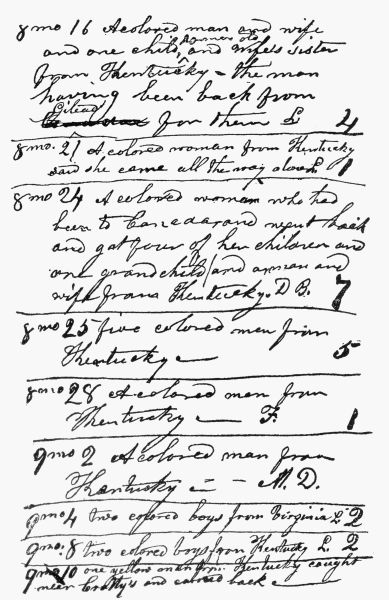 8mo 16 A colored man and wife
and one child, and wifes sister
from Kentucky - the man
having been back from
Gilead
for them L 4
8mo. 21 A colored woman from Kentucky
said she came all the way alone L 1
8mo 24 A colored woman who had
been to Canada and went back
and got four of her children and
one grandchild and a man and
wife from Kentucky. D B. 7
8mo 25 five colored men from
Kentucky 5
8mo 28 A colored man from
Kentucky F. 1
9mo 2 A colored man from
Kentucky - - M. D.
9mo 4 two colored boys from Virginia L 2
9mo. 8 two colored boys from Kentucky L. 2
9mo 10 one yellow man from Kentucky caught
near and carried back